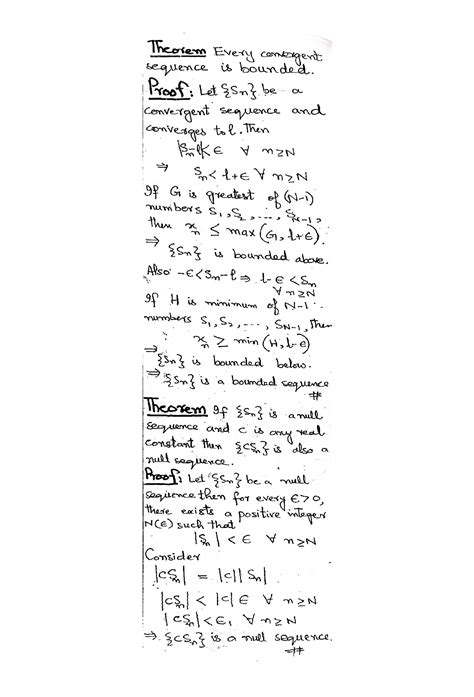 Theorem Every convergent
sequence is bounded.
Proof: Let {Sn} be a
convergent sequence and
converges to l. Then
|Sn-l| < ε ∀ n≥N
⇒ Sn < l+ε ∀ n≥N
If G is greatest of (N-1)
numbers S1, S2, ..., SN-1,
then xn ≤ max(G, l+ε).
⇒ {Sn} is bounded above.
Also -ε<Sn-l ⇒ l-ε<Sn
∀ n≥N
If H is minimum of N-1
numbers S1, S2, ---, SN-1, then
xn ≥ min(H, l-ε)
⇒ {Sn} is bounded below.
⇒ {Sn} is a bounded sequence
#
Theorem If {Sn} is a null
sequence and c is any real
constant then {cSn} is also a
null sequence.
Proof: Let {Sn} be a null
sequence then for every ε>0,
there exists a positive integer
N(ε) such that
|Sn| < ε ∀ n≥N
Consider
|cSn| = |c| |Sn|
|cSn| < |c| ε ∀ n≥N
|cSn| < ε, ∀ n≥N
⇒ {cSn} is a null sequence.
#